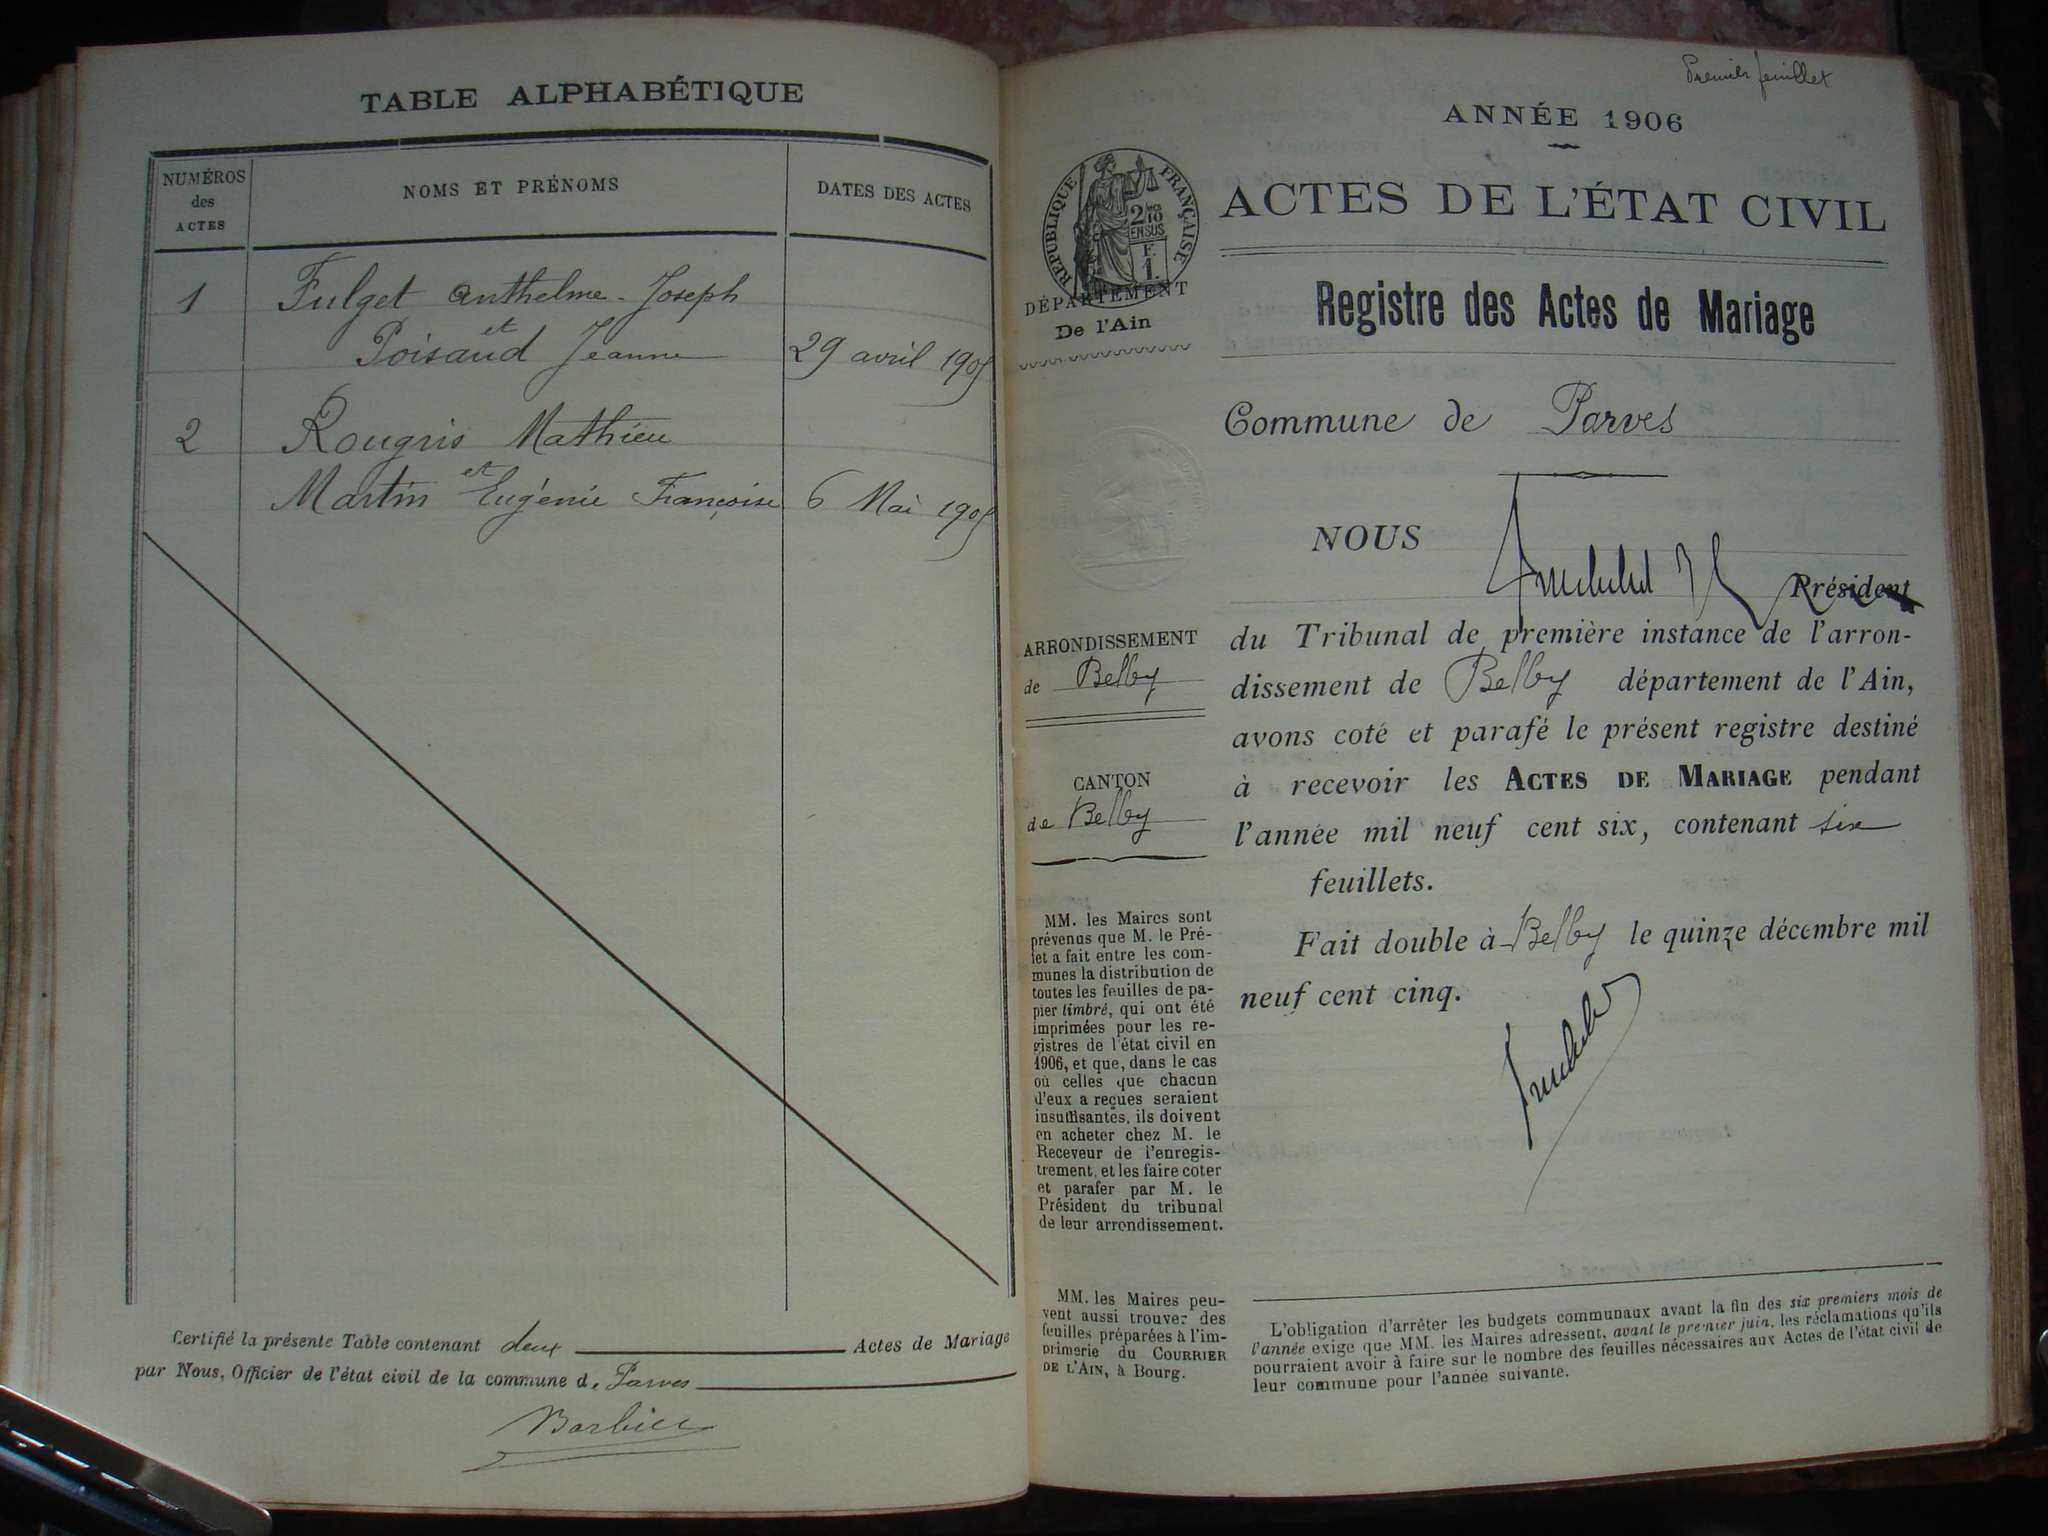 TABLE ALPHABÉTIQUE
NUMÉROS
des
ACTES
NOMS ET PRÉNOMS
DATES DES ACTES
1 Fulget Anthelme-Joseph
et
Poisaud Jeanne 29 avril 1905
2 Rougris Mathieu
et
Martin Eugénie Françoise 6 Mai 1905
Certifié la présente Table contenant deux Actes de Mariage
par Nous, Officier de l'état civil de la commune de Parves
Barbier
Premier feuillet
ANNÉE 1906
RÉPUBLIQUE FRANÇAISE
2/10
EN SUS
F.
1.
DÉPARTEMENT
De l'Ain
ACTES DE L'ÉTAT CIVIL
Registre des Actes de Mariage
Commune de Parves
ARRONDISSEMENT
de Belley
CANTON
de Belley
MM. les Maires sont
prévenus que M. le Pré-
fet a fait entre les com-
munes la distribution de
toutes les feuilles de pa-
pier timbré, qui ont été
imprimées pour les re-
gistres de l'état civil en
1906, et que, dans le cas
où celles que chacun
d'eux a reçues seraient
insuffisantes, ils doivent
en acheter chez M. le
Receveur de l'enregis-
trement, et les faire coter
et parafer par M. le
Président du tribunal
de leur arrondissement.
MM. les Maires peu-
vent aussi trouver des
feuilles préparées à l'im-
primerie du COURRIER
DE L'AIN, à Bourg.
NOUS
Président
du Tribunal de première instance de l'arron-
dissement de Belley département de l'Ain,
avons coté et parafé le présent registre destiné
à recevoir les ACTES DE MARIAGE pendant
l'année mil neuf cent six, contenant six
feuillets.
Fait double à Belley le quinze décembre mil
neuf cent cinq.
L'obligation d'arrêter les budgets communaux avant la fin des six premiers mois de
l'année exige que MM. les Maires adressent, avant le premier juin, les réclamations qu'ils
pourraient avoir à faire sur le nombre des feuilles nécessaires aux Actes de l'état civil de
leur commune pour l'année suivante.